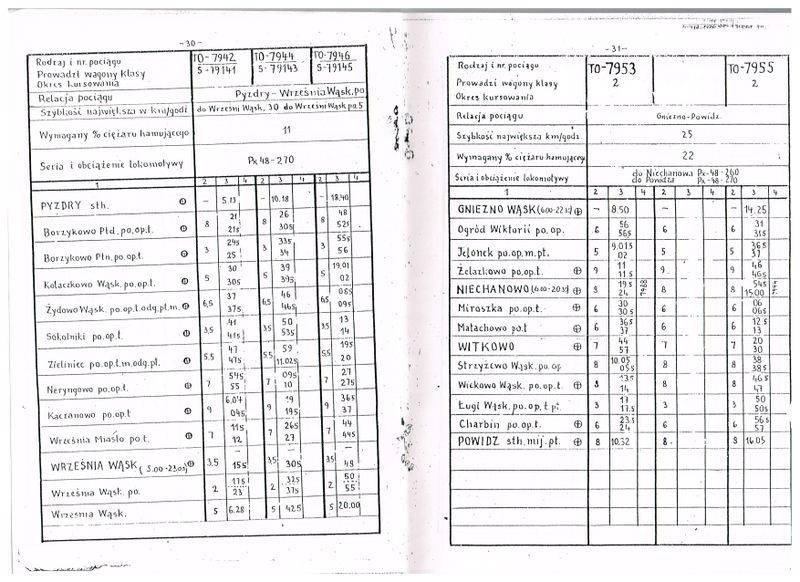 - 30 -
Rodzaj i nr. pociągu TO-7942 TO-7944 TO-7946
Prowadzi wagony klasy S-79141 S-79143 S-79145
Okres kursowania
Relacja pociągu Pyzdry - Września Wąsk.po
Szybkość największa w km/godz do Wrześni Wąsk. 30 do Wrześni Wąsk po.5
Wymagany % ciężaru hamującego 11
Seria i obciążenie lokomotywy Px48-270
1 2 3 4 2 3 4 2 3 4
PYZDRY sth. - 5.13 - 10.18 - 18.40
Borzykowo Płd. po.op.t. 8 21 215 8 26 305 8 48 525
Borzykowo Płn. po.op.t. 3 245 25 3 335 34 3 555 56
Kołaczkowo Wąsk. po.op.t. 5 30 305 5 39 395 5 19.01 02
Żydowo Wąsk. po.op.t.odg.pt.m. 6,5 37 375 6,5 46 465 6,5 085 095
Sokolniki po.op.t. 3,5 41 415 3,5 50 535 3,5 13 14
Zieliniec po.op.t.m.odg.pt. 5,5 47 475 5,5 59 11.025 5,5 195 20
Neryngowo po.op.t. 7 545 55 7 095 10 7 27 275
Kaczanowo po.op.t 9 6.04 045 9 19 195 9 365 37
Września Miasto po.t. 7 115 12 7 265 27 7 44 445
WRZEŚNIA WĄSK (5.00-23.05) 3,5 155 3,5 305 3,5 48
Września Wąsk. po. 2 175 23 2 325 375 2 50 55
Września Wąsk. 5 6.28 5 425 5 20.00
- 31 -
Rodzaj i nr. pociągu TO-7953 TO-7955
Prowadzi wagony klasy 2 2
Okres kursowania
Relacja pociągu Gniezno-Powidz.
Szybkość największa w km/godz. 25
Wymagany % ciężaru hamującego 22
Seria i obciążenie lokomotywy do Niechanowa Px-48-260
do Powidza Px-48-270
1 2 3 4 2 3 4 2 3 4
GNIEZNO WĄSK - 8.50 - - 14.25
Ogród Wiktorii po.op. 6 56 565 6 6 31 315
Jelonek po.op.m.pt. 5 9.015 02 5 5 365 37
Żelazkowo po.op.t. 9 11 115 9 9 46 465
NIECHANOWO (6.00-20.35) 8 195 24 8 8 545 15.00
Miroszka po.op.t. 6 30 305 6 6 06 065
Małachowo po.t 6 365 37 6 6 125 13
WITKOWO 7 44 57 7 7 20 30
Strzyżewo Wąsk. po.op 8 10.05 055 8 8 38 385
Wiekowo Wąsk. po.op.t. 8 135 14 8 8 465 47
Ługi Wąsk. po.op.t.pt. 3 17 175 3 3 50 505
Charbin po.op.t. 6 235 24 6 6 565 57
POWIDZ sth.mij.pt. 8 10.32 8 8 16.05